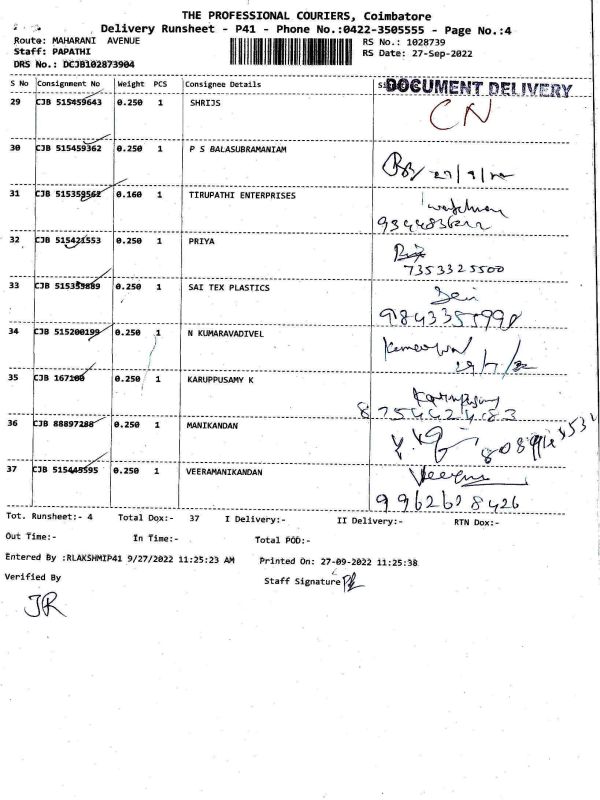 THE PROFESSIONAL COURIERS, Coimbatore
Delivery Runsheet - P41 - Phone No.:0422-3505555 - Page No.:4
Route: MAHARANI AVENUE
RS No.: 1028739
Staff: PAPATHI
RS Date: 27-Sep-2022
DRS No.: DCJB102873904
S No Consignment No Weight PCS Consignee Details
DOCUMENT DELIVERY
29 CJB 515459643 0.250 1 SHRIJS
CN
30 CJB 515459362 0.250 1 P S BALASUBRAMANIAM
27/9/22
31 CJB 515359562 0.160 1 TIRUPATHI ENTERPRISES
watchman
32 CJB 515421553 0.250 1 PRIYA
7353325500
33 CJB 515359889 0.250 1 SAI TEX PLASTICS
34 CJB 515200199 0.250 1 N KUMARAVADIVEL
35 CJB 167100 0.250 1 KARUPPUSAMY K
8754424183
36 CJB 88897288 0.250 1 MANIKANDAN
37 CJB 515445595 0.250 1 VEERAMANIKANDAN
9962608426
Tot. Runsheet:- 4 Total Dox:- 37 I Delivery:- II Delivery:- RTN Dox:-
Out Time:- In Time:- Total POD:-
Entered By :RLAKSHMIP41 9/27/2022 11:25:23 AM Printed On: 27-09-2022 11:25:38
Verified By Staff Signature
JR